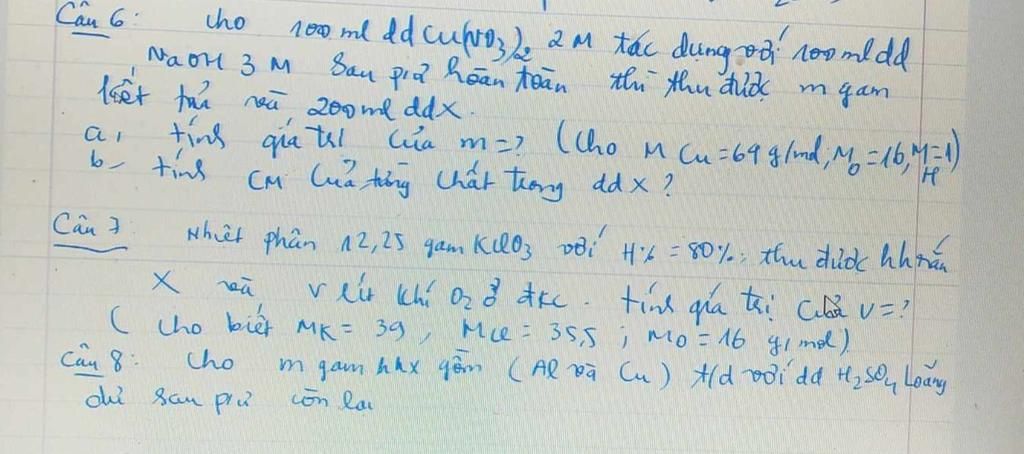 Câu 6: Cho 100 ml dd Cu(NO3)2 2M tác dụng với 100 ml dd
NaOH 3M sau pứ hoàn toàn thì thu được m gam
kết tủa và 200 ml ddX.
a, tính giá trị của m=? (Cho M Cu=64 g/mol; MO=16, MH=1)
b- tính CM của từng chất trong ddX?
Câu 7: Nhiệt phân 12,25 gam KClO3 với H% = 80%; thu được hh rắn
X và V lít khí O2 ở đkc. tính giá trị của V=?
( Cho biết MK= 39, MCl= 35,5 ; MO=16 g/mol)
Câu 8: Cho m gam hhx gồm (Al và Cu) t/d với dd H2SO4 loãng
dư sau pứ còn lại